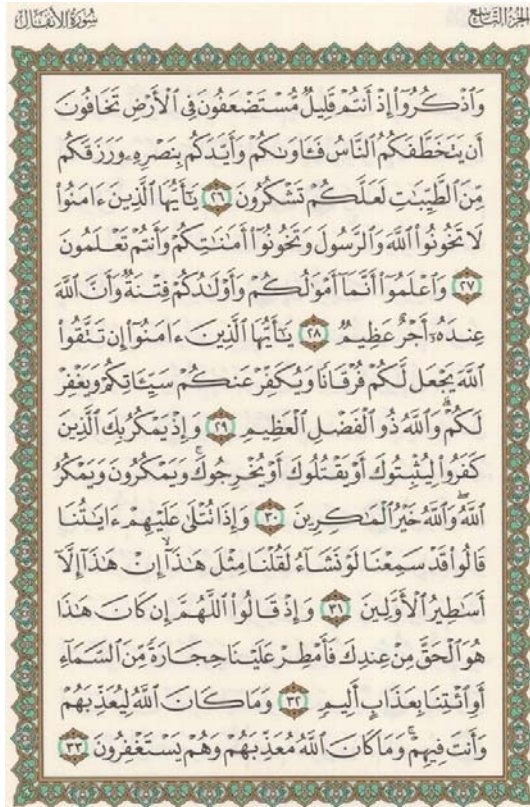 الجزء التاسع
سورة الأنفال
وَاذْكُرُوٓا۟ إِذْ أَنتُمْ قَلِيلٌ مُّسْتَضْعَفُونَ فِى ٱلْأَرْضِ تَخَافُونَ
أَن يَتَخَطَّفَكُمُ ٱلنَّاسُ فَـَٔاوَىٰكُمْ وَأَيَّدَكُم بِنَصْرِهِۦ وَرَزَقَكُم
مِّنَ ٱلطَّيِّبَٰتِ لَعَلَّكُمْ تَشْكُرُونَ ٢٦ يَٰٓأَيُّهَا ٱلَّذِينَ ءَامَنُوا۟
لَا تَخُونُوا۟ ٱللَّهَ وَٱلرَّسُولَ وَتَخُونُوٓا۟ أَمَٰنَٰتِكُمْ وَأَنتُمْ تَعْلَمُونَ
٢٧ وَٱعْلَمُوٓا۟ أَنَّمَآ أَمْوَٰلُكُمْ وَأَوْلَٰدُكُمْ فِتْنَةٌ وَأَنَّ ٱللَّهَ
عِندَهُۥٓ أَجْرٌ عَظِيمٌ ٢٨ يَٰٓأَيُّهَا ٱلَّذِينَ ءَامَنُوٓا۟ إِن تَتَّقُوا۟
ٱللَّهَ يَجْعَل لَّكُمْ فُرْقَانًا وَيُكَفِّرْ عَنكُمْ سَيِّـَٔاتِكُمْ وَيَغْفِرْ
لَكُمْ ۗ وَٱللَّهُ ذُو ٱلْفَضْلِ ٱلْعَظِيمِ ٢٩ وَإِذْ يَمْكُرُ بِكَ ٱلَّذِينَ
كَفَرُوا۟ لِيُثْبِتُوكَ أَوْ يَقْتُلُوكَ أَوْ يُخْرِجُوكَ ۚ وَيَمْكُرُونَ وَيَمْكُرُ
ٱللَّهُ ۖ وَٱللَّهُ خَيْرُ ٱلْمَٰكِرِينَ ٣٠ وَإِذَا تُتْلَىٰ عَلَيْهِمْ ءَايَٰتُنَا
قَالُوا۟ قَدْ سَمِعْنَا لَوْ نَشَآءُ لَقُلْنَا مِثْلَ هَٰذَآ ۙ إِنْ هَٰذَآ إِلَّآ
أَسَٰطِيرُ ٱلْأَوَّلِينَ ٣١ وَإِذْ قَالُوا۟ ٱللَّهُمَّ إِن كَانَ هَٰذَا
هُوَ ٱلْحَقَّ مِنْ عِندِكَ فَأَمْطِرْ عَلَيْنَا حِجَارَةً مِّنَ ٱلسَّمَآءِ
أَوِ ٱئْتِنَا بِعَذَابٍ أَلِيمٍ ٣٢ وَمَا كَانَ ٱللَّهُ لِيُعَذِّبَهُمْ
وَأَنتَ فِيهِمْ ۚ وَمَا كَانَ ٱللَّهُ مُعَذِّبَهُمْ وَهُمْ يَسْتَغْفِرُونَ ٣٣